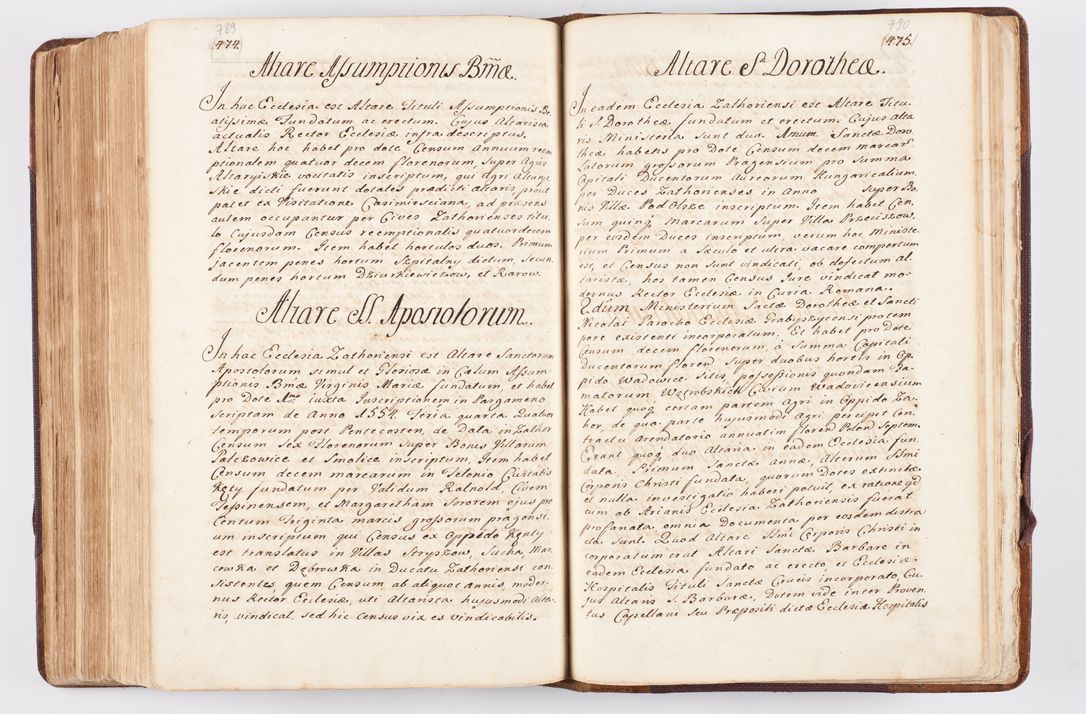 789
(474)
Altare Assumptionis Bmæ.
In hac Ecclesia est Altare Tituli Assumptionis Be-
atissimæ Fundatum ac erectum. Cujus Altarista
actualis Rector Ecclesiæ infra descriptus.
Altare hoc habet pro dote Censum Annuum reem
ptionalem quatuor decem florenorum, super Agris
Altaryiskie vocitatis inscriptum, qui agri Altaryi-
skie dicti fuerunt dotales prædicti altaris, prout
patet ex Visitatione Casimirsciana, ad præsens
autem occupantur per Cives Zathorienses titu-
lo Cujusdam Census reemptionalis quatuordecem
florenorum. Item habet hortulos duos. Primum
jacentem penes hortum Szpitalny dictum, Secun
dum penes hortum Dziurkiewiczow, et Rarow.
Altare SS. Apostolorum.
In hac Ecclesia Zathoriensi est Altare Sanctorum
Apostolorum simul et Gloriosæ in Cœlum Assum-
ptionis Bmæ Virginis Mariæ fundatum, et habet
pro Dote iuxta Inscriptionem in Pargameno
Scriptam de Anno 1554. Feria quarta Quatuor
temporum post Pentecosten, de Data in Zathor
Censum Sex Florenorum super Bonis Villarum
Palczowice et Smolice inscriptum, Item habet
Censum decem marcarum in Telonio Civitatis
Kęty fundatum per Validum Ratnold Civem
Tessinensem, et Margaretham Sororem ejus pro
Centum Triginta marcis grossorum pragensi-
um inscriptum qui Census ex Oppido Kenty
est translatus in Villas Stryszow, Sucha, Mar-
cowka et Dębrowka in Ducatu Zathoriensi con-
sistentes, quem Censum ab aliquot annis, moder-
nus Rector Ecclesiæ, uti Altarista hujusmodi Alta-
ris, vindicat, sed hic Census vix es vindicabilis.
790
(475.)
Altare Sæ Dorotheæ.
In eadem Ecclesia Zathoriensi est Altare Titu-
li S. Dorotheæ fundatum et erectum. Cujus alta
ris Ministeria sunt duo. Unum Sanctæ Doro
theæ habens pro Dote Censum decem marcar
Latorum grossorum Pragensium pro Summa
Capitali Ducentorum Aureorum Hungaricalium
per Duces Zathorienses in Anno super Bo-
nis Villæ Pod Olsze inscriptum. Item habet Cen-
sum quinq marcarum super Villa Przeciszow.
per eosdem Duces inscriptum, verum hoc Ministe-
rium Primum a Sæculo et ultra vacare compertum
est, et Census non sunt vindicati, ob defectum al-
taristæ, hos tamen Census Jure vindicat mo-
dernus Rector Ecclesiæ in Curia Romana.
2dum Ministerium Sactæ Dorotheæ et Sancti
Nicolai Parocho Ecclesiæ Grabyszycensi pro tem
pore existenti incorporatum. Et habet pro Dote
Censum decem florenorum, à Summa Capitali
Ducentorum floren super duobus hortis in Op-
pido Wadowice sitis, possessionis quondam Fa-
matorum Wątrobskich Civium Wadovicensium
Habet quoq certam partem Agri in Oppido Za-
thor, de qua parte hujusmodi Agri percipit Con-
tractu arendatorio annuatim floren Polon Septem.
Erant quoq duo Altaria in eadem Ecclesia fun-
data. Primum Sanctæ Annæ, Alterum Ssmi
Corporis Christi fundata, quorum Dotes extinctæ
et nulla investigatio haberi potuit, ex ratione qd
cum ab Arianis Ecclesia Zathoriensis fuerat
profanata omnia Documenta per eosdem distra
cta sunt. Quod Altare Ssmi Corporis Christi in
corporatum erat Altari Sanctæ Barbaræ in
eadem Ecclesia fundato ac erecto, et Ecclesiæ
Hospitalis Tituli Sanctæ Crucis incorporato, Cu-
jus Altaris S. Barbaræ, Dotem vide inter Proven-
tus Capellani seu Præpositi dictæ Ecclesiæ Hospitalis